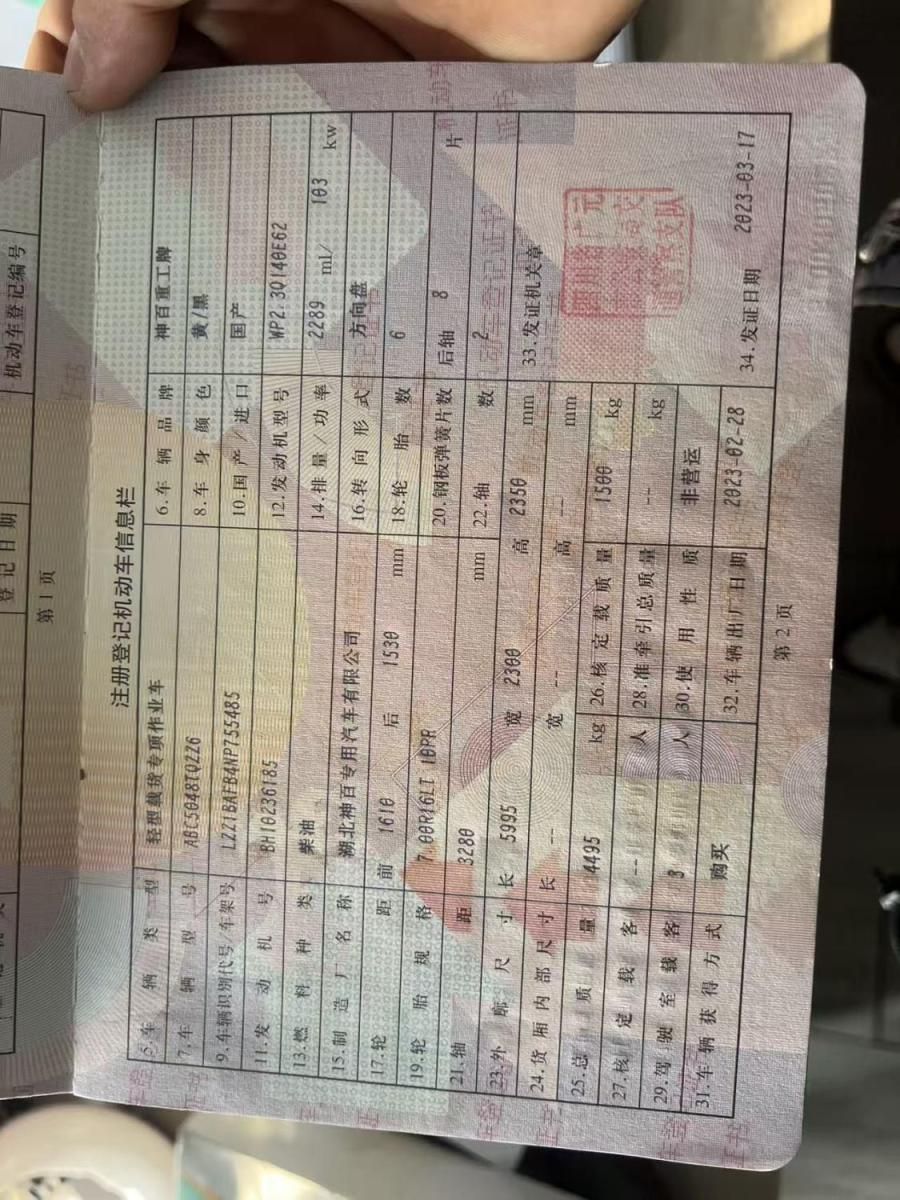 机动车登记编号
登记日期
第1页
注册登记机动车信息栏
5.车辆类型 轻型载货专项作业车 6.车辆品牌 神百重工牌
7.车辆型号 ABC5048TQZZ6 8.车身颜色 黄/黑
9.车辆识别代号/车架号 LZZ1BAFB4NP755485 10.国产/进口 国产
11.发动机号 BH10236185 12.发动机型号 WP2.3Q140E62
13.燃料种类 柴油 14.排量/功率 2289 ml/ 103 kw
15.制造厂名称 湖北神百专用汽车有限公司 16.转向形式 方向盘
17.轮距 前 1610 后 1530 mm 18.轮胎数 6
19.轮胎规格 7.00R16LT 10PR 20.钢板弹簧片数 后轴 8 片
21.轴距 3280 mm 22.轴数 2
23.外廓尺寸 长 5995 宽 2300 高 2350 mm 33.发证机关章
24.货厢内部尺寸 长 -- 宽 -- 高 -- mm
25.总质量 4495 kg 26.核定载质量 1500 kg
27.核定载客 -- 人 28.准牵引总质量 -- kg
29.驾驶室载客 3 人 30.使用性质 非营运
31.车辆获得方式 购买 32.车辆出厂日期 2023-02-28 34.发证日期 2023-03-17
第2页